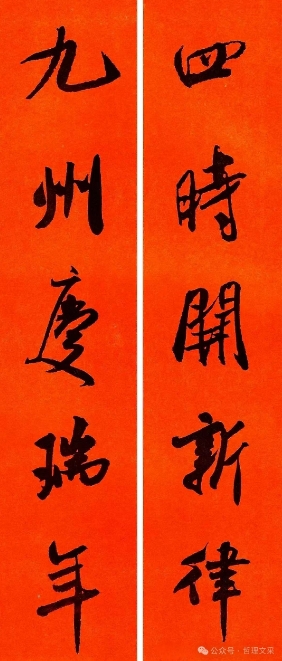 四時開新律
九州慶瑞年
公众号 · 哲理文采